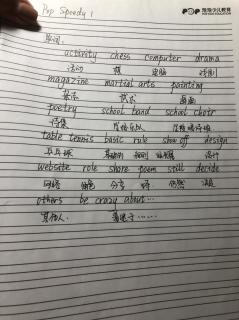 Pop Speedy 1
泡泡少儿教育
单词:
activity chess computer drama
活动 棋 电脑 戏剧
magazine martial arts painting
杂志 武术 画画
poetry school band school choir
诗集
table tennis basic rule show off design
乒乓球 基础的 规则 炫耀 设计
website role share poem still decide
网站 角色 分享 诗 仍然 决定
others be crazy about...
其他人 着迷于……